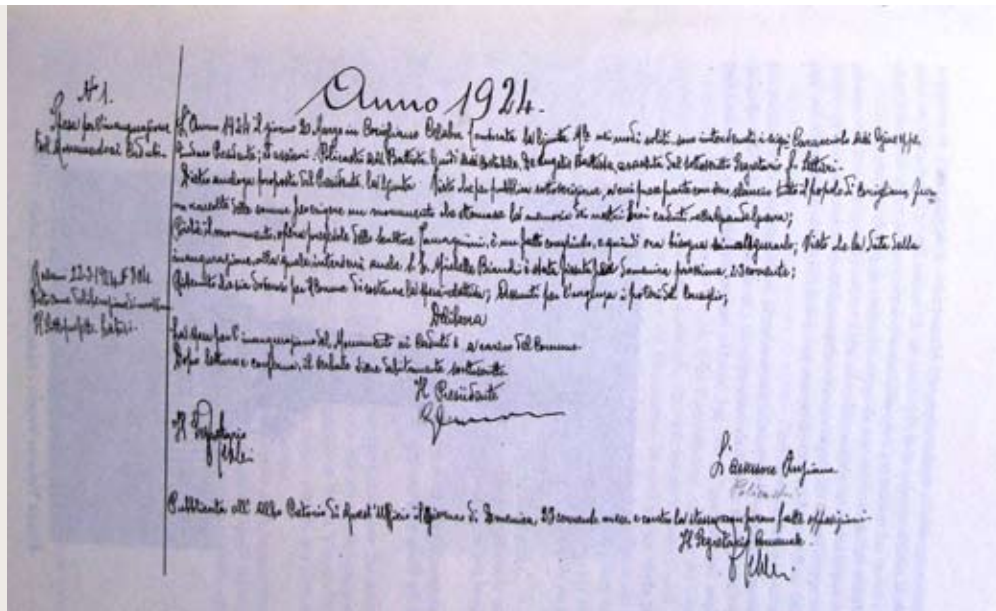 Anno 1924.
N° 1.
Spese per l'inaugurazione
del Monumento ai Caduti.
L'Anno 1924 il giorno 20 Marzo in Corigliano Calabro Convocata la Giunta Mle nei modi soliti sono intervenuti i sigri
Sindaco Presidente; Assessori: Policastri Battista, De Angelis Battista, assistita dal sottoscritto Segretario
Dietro analoga proposta del Presidente la Giunta. Visto che per pubblica sottoscrizione, a cui prese parte con vero slancio tutto il popolo di Corigliano,
raccolte delle somme per erigere un monumento che eternasse la memoria dei nostri Eroi caduti nella grande guerra;
il monumento, opera pregevole dello scultore è un fatto compiuto, e quindi ora bisogna inaugurarlo; Visto che la data della
inaugurazione alla quale interverrà anche S. E. Michele Bianchi è stata fissata per Domenica prossima, 23 corrente;
Ritenuto che sia doveroso per il Comune di sostenere la spesa relativa; Assunti per l'urgenza i poteri del Consiglio;
22-3-1924 N°
Il Sottoprefetto
Delibera
La spesa per l'inaugurazione del Monumento ai Caduti è a carico del Comune
Dopo lettura e conferma, il verbale viene debitamente sottoscritto
Il Presidente
Il Segretario
L'assessore Anziano
Policastri
Pubblicata all'Albo Pretorio di quest'Ufficio il giorno di Domenica, 23 corrente mese, e contro la stessa non furono fatte opposizioni
Il Segretario Comunale